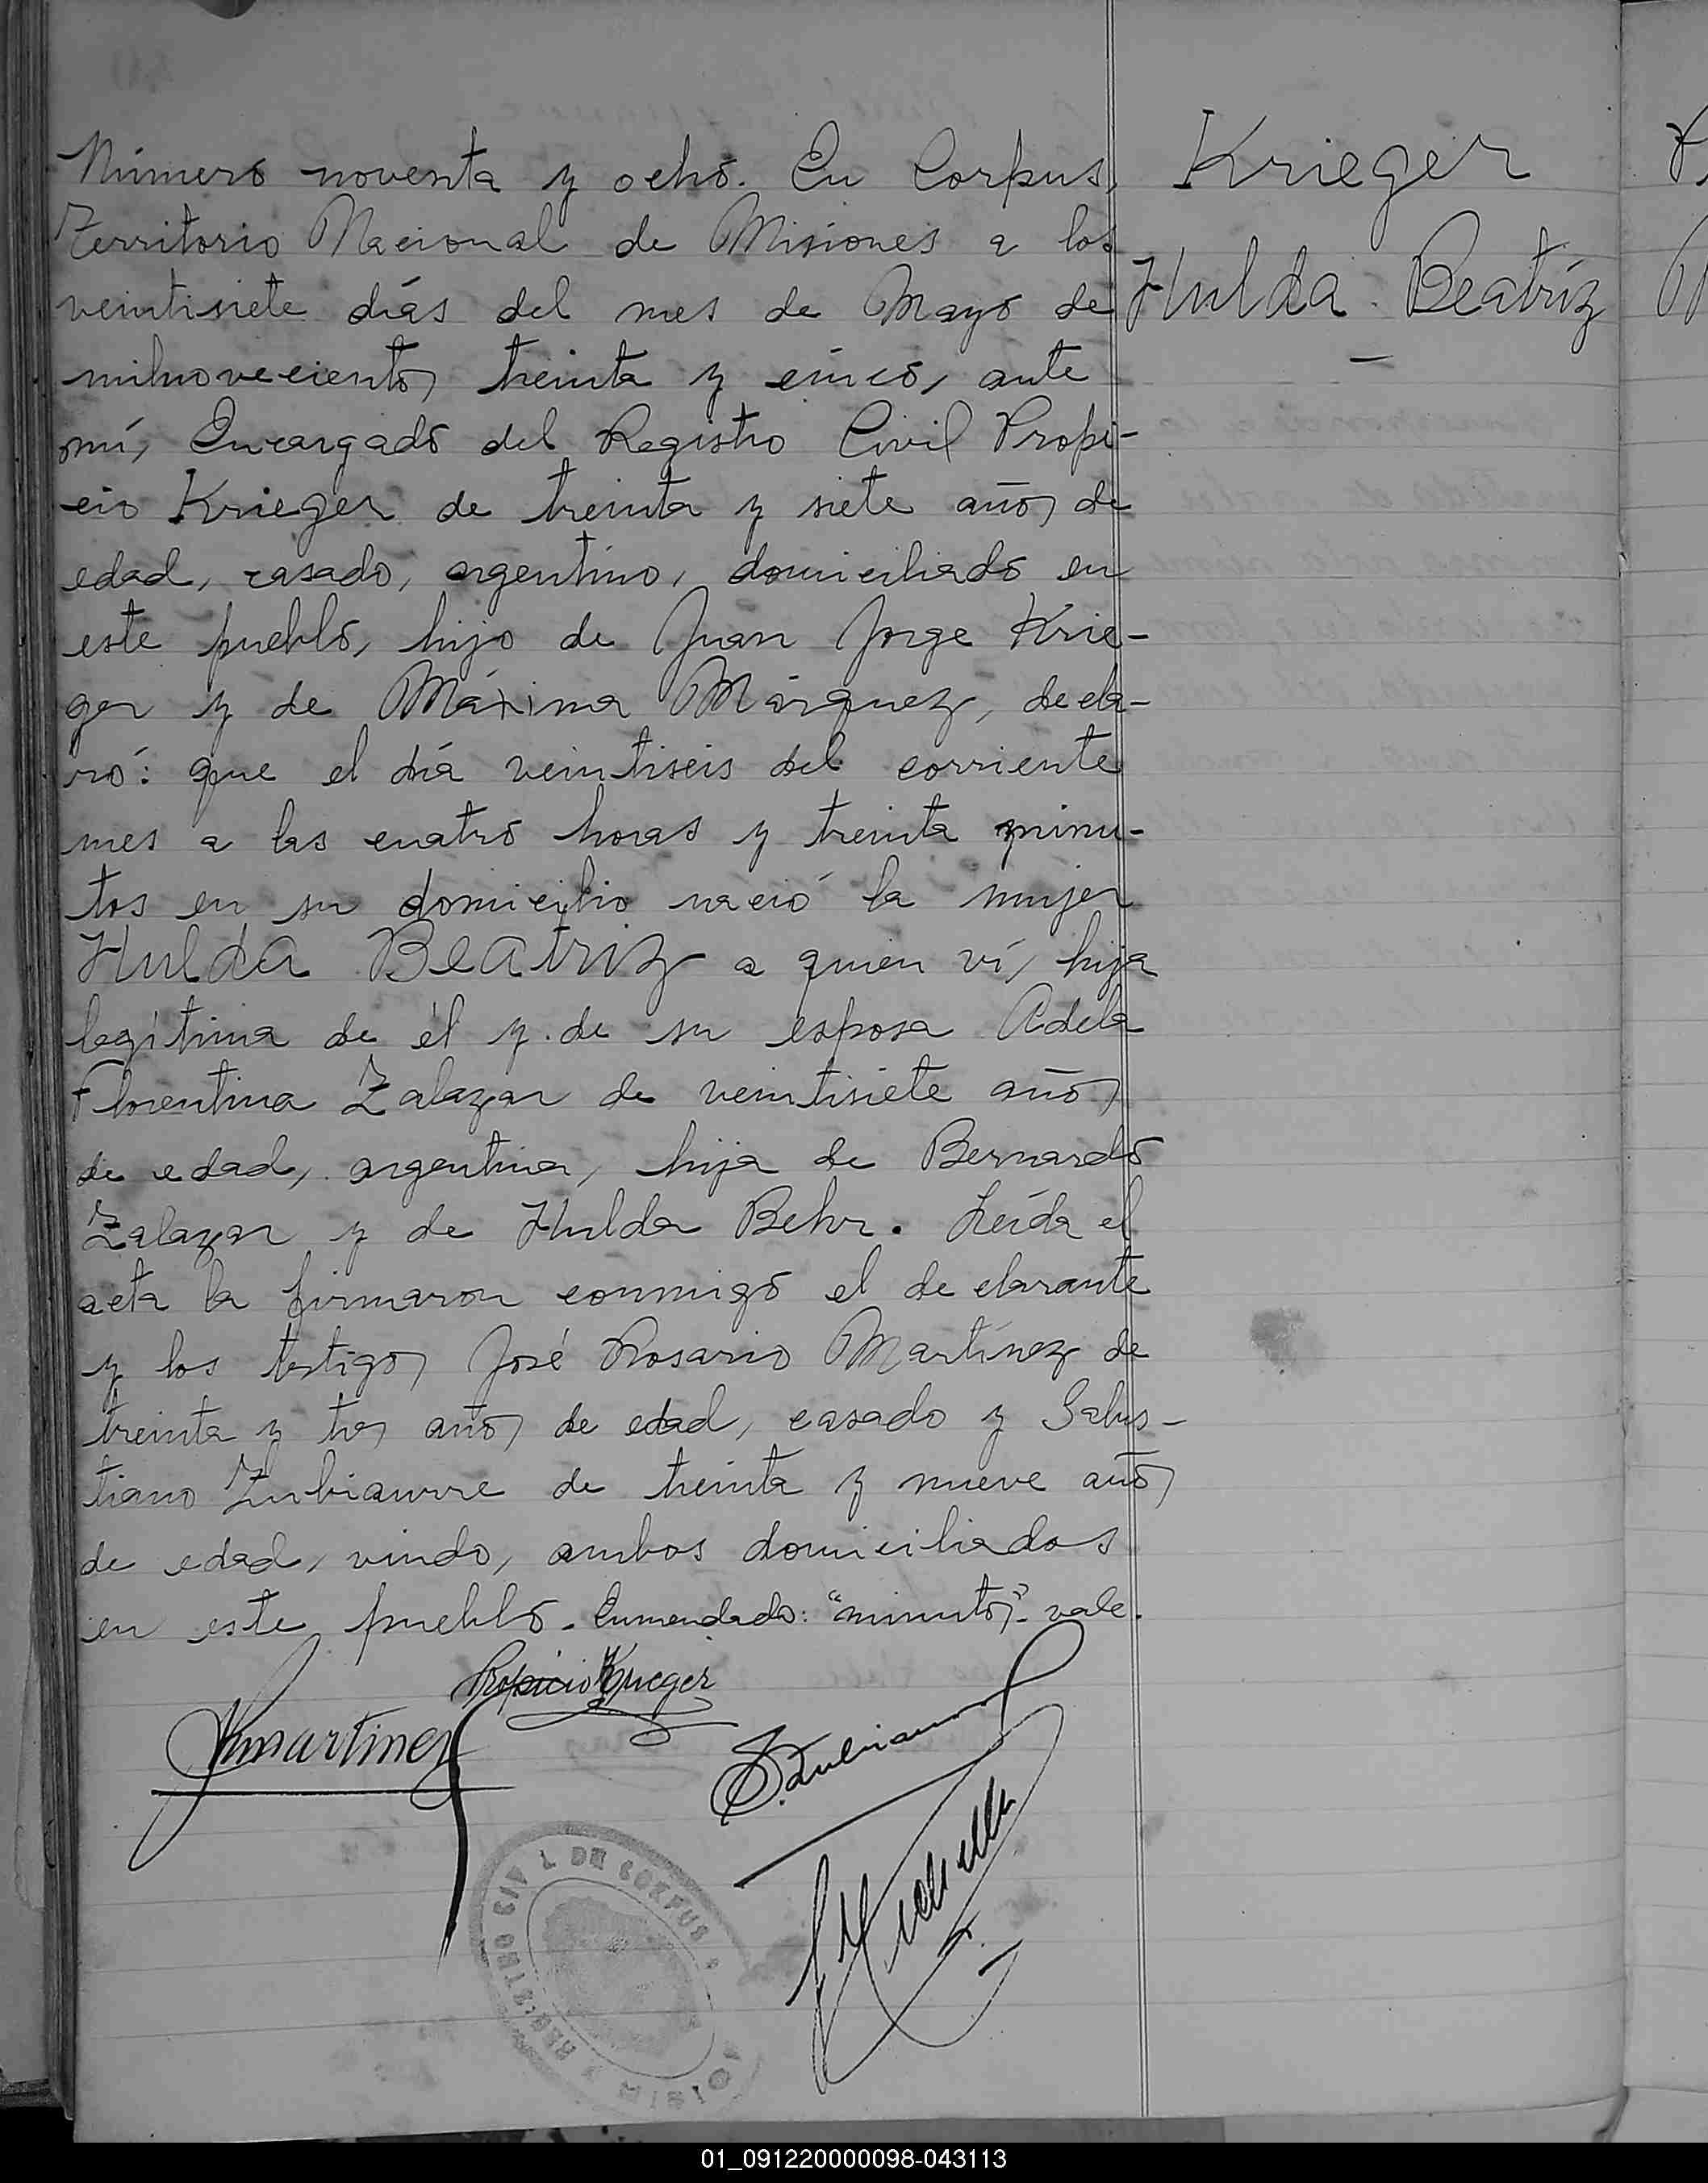 Número noventa y ocho. En Corpus,
Territorio Nacional de Misiones a los
veintisiete días del mes de Mayo de
milnovecientos treinta y cinco, ante
mí, Encargado del Registro Civil Propi-
cio Krieger de treinta y siete años de
edad, casado, argentino, domiciliado en
este pueblo, hijo de Juan Jorge Krie-
ger y de Máxima Márquez, decla-
ró: que el día veintiseis del corriente
mes a las cuatro horas y treinta minu-
tos en su domicilio nació la mujer
Hulda Beatriz a quien ví, hija
legítima de él y de su esposa Adela
Florentina Zalazar de veintisiete años
de edad, argentina, hija de Bernardo
Zalazar y de Hulda Behr. Leída el
acta la firmaron conmigo el declarante
y los testigos José Rosario Martínez de
treinta y tres años de edad, casado y Salus-
tiano Zubiaurre de treinta y nueve años
de edad, viudo, ambos domiciliados
en este pueblo. Enmendado: "minutos"- vale.
Propicio Krieger
JRMartinez
S. Zubiaurre
REGISTRO CIVIL DE CORPUS
Krieger
Hulda Beatríz
01_091220000098-043113